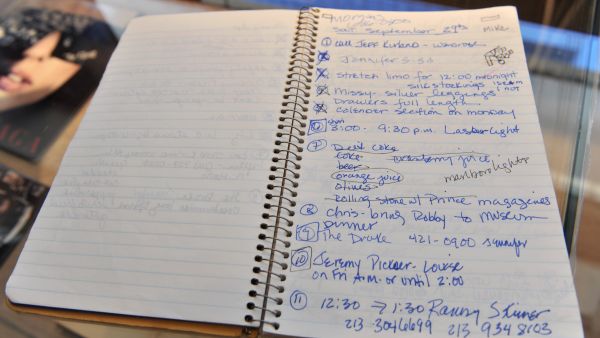 Sat September 29th
Mike
① Call Jeff Kurland - wardrobe
Jennifer 5:30
Stretch limo for 12:00 midnight
silk stockings 1 seam
not
Missy - silver leggings
Drawers full length
Calendar section on Monday
⑥ 3:00 - 9:30 p.m. Laser light
⑦ Diet Coke
Coke
cranberry juice
beer
orange juice
marlboro lights
olives
Rolling Stone w/ Prince magazines
⑧ Chris - bring Bobby to Museum
Dinner
⑨ The Drake 421-0900 Jennifer
⑩ Jeremy Pickser - Louise
on Fri A.M. or until 2:00
⑪ 12:30 → 1:30 Ranny
213 3046699 213 934 8103
AGA